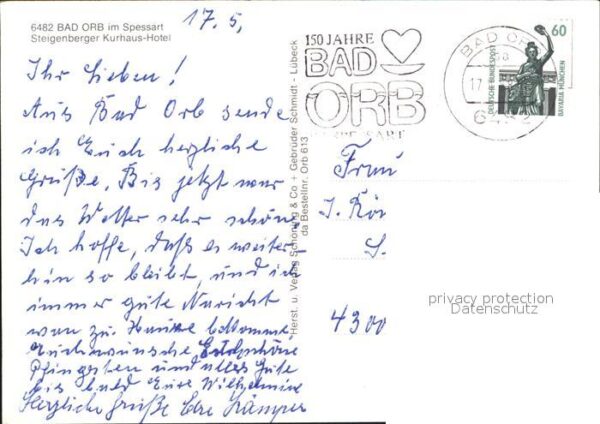 17.5.
6482 BAD ORB im Spessart
Steigenberger Kurhaus-Hotel
Ihr Lieben!
Aus Bad Orb sende
ich Euch herzliche
Grüße. Bis jetzt war
das Wetter sehr schön.
Ich hoffe, daß es weiter-
hin so bleibt, und ich
immer gute Naricht
von zu Hause bekomme.
Euch wünsche schöne
Pfingsten und alles Gute
bis bald Eure Wilhelmine
Herzliche Grüße
Herst. u. Verlag Schöning & Co + Gebrüder Schmidt - Lübeck
da Bestellnr. Orb 613
150 JAHRE
BAD
ORB
IM SPESSART
BAD ORB
17
60
DEUTSCHE BUNDESPOST
BAVARIA MÜNCHEN
Frau
4300
privacy protection
Datenschutz